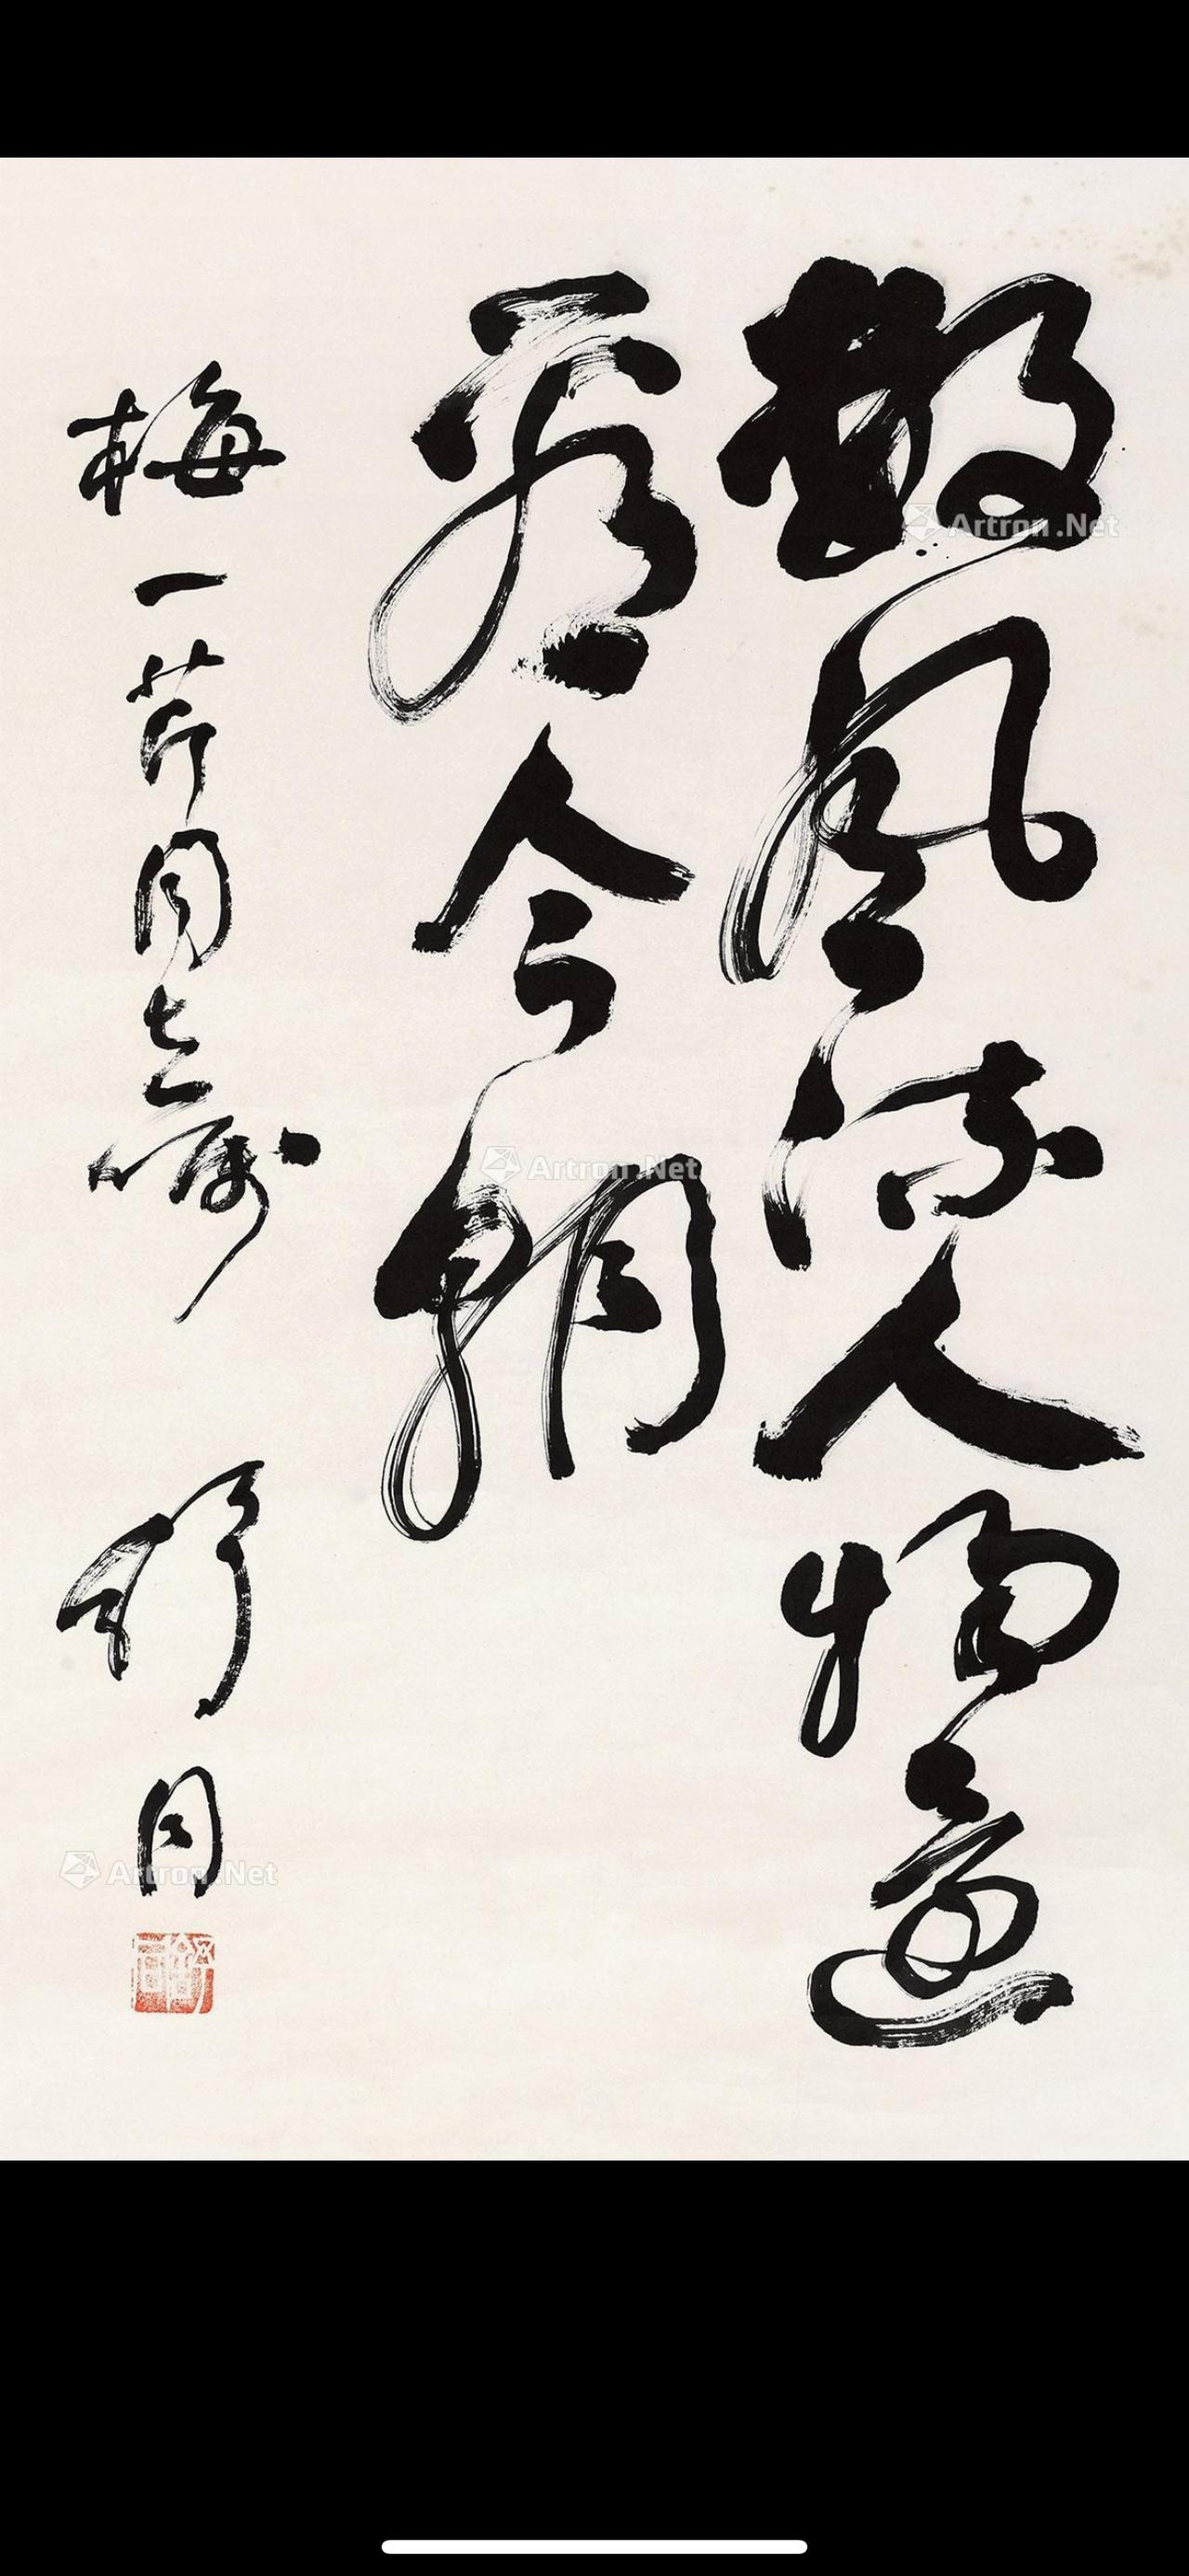 數風流人物還
看今朝
梅一芹同志属 舒同
舒同
Artron.Net
Artron.Net
Artron.Net